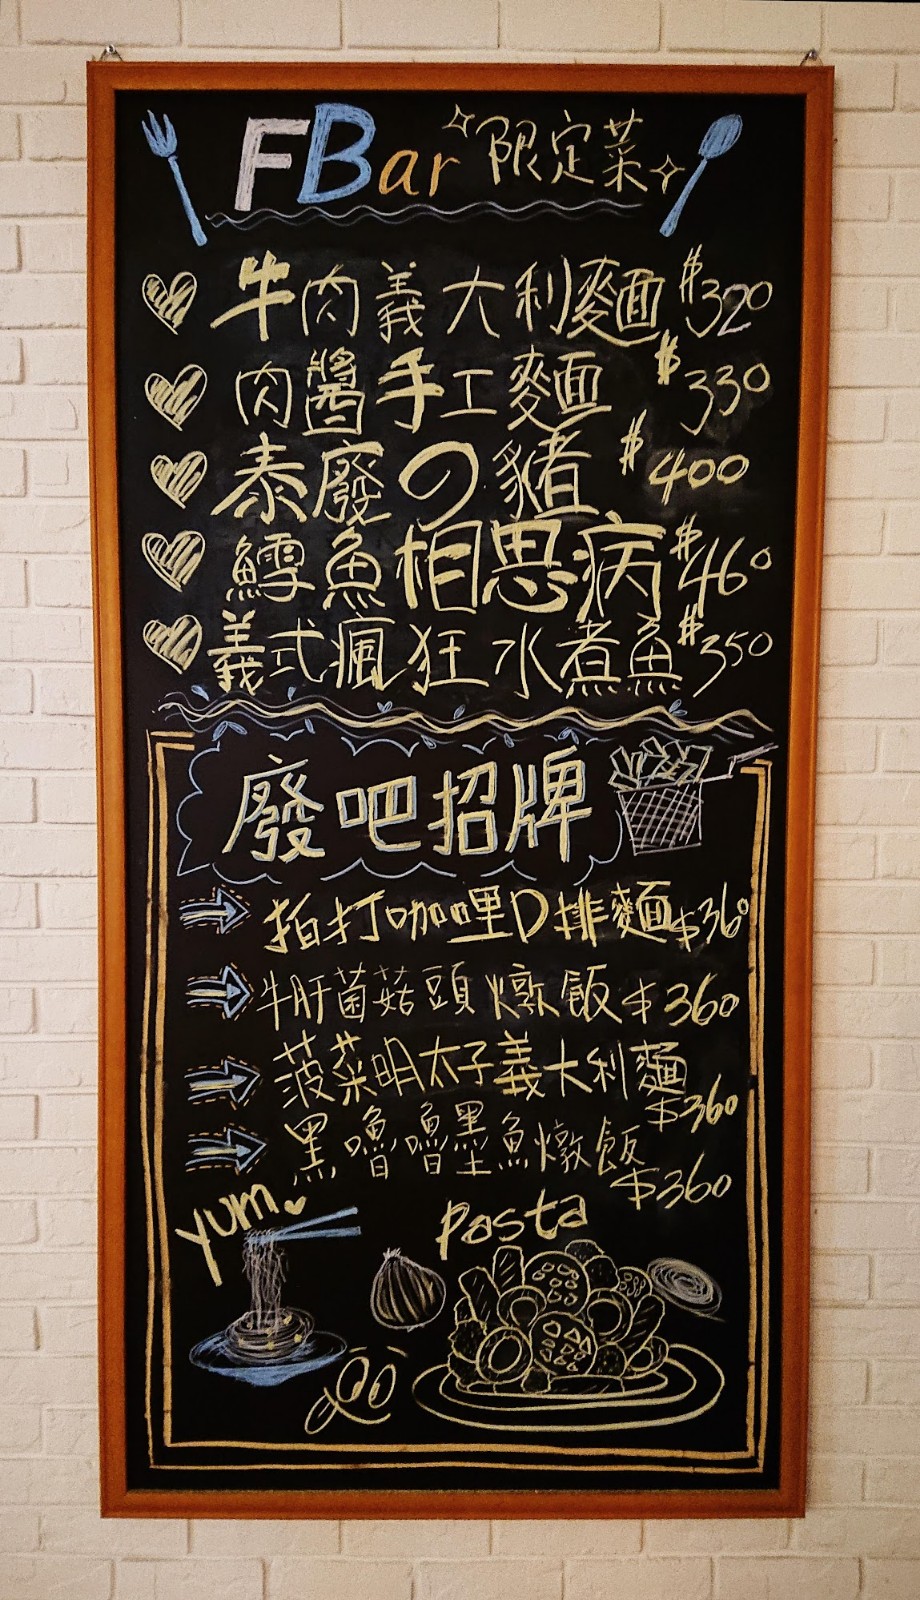 FBar 限定菜
牛肉義大利麵 $320
肉醬手工麵 $330
泰廢の豬 $400
鱈魚相思病 $460
義式瘋狂水煮魚 $350
廢吧招牌
拍打咖哩D排麵 $360
牛肝菌菇頭燉飯 $360
菠菜明太子義大利麵
$360
黑嚕嚕墨魚燉飯
$360
Yum
Pasta